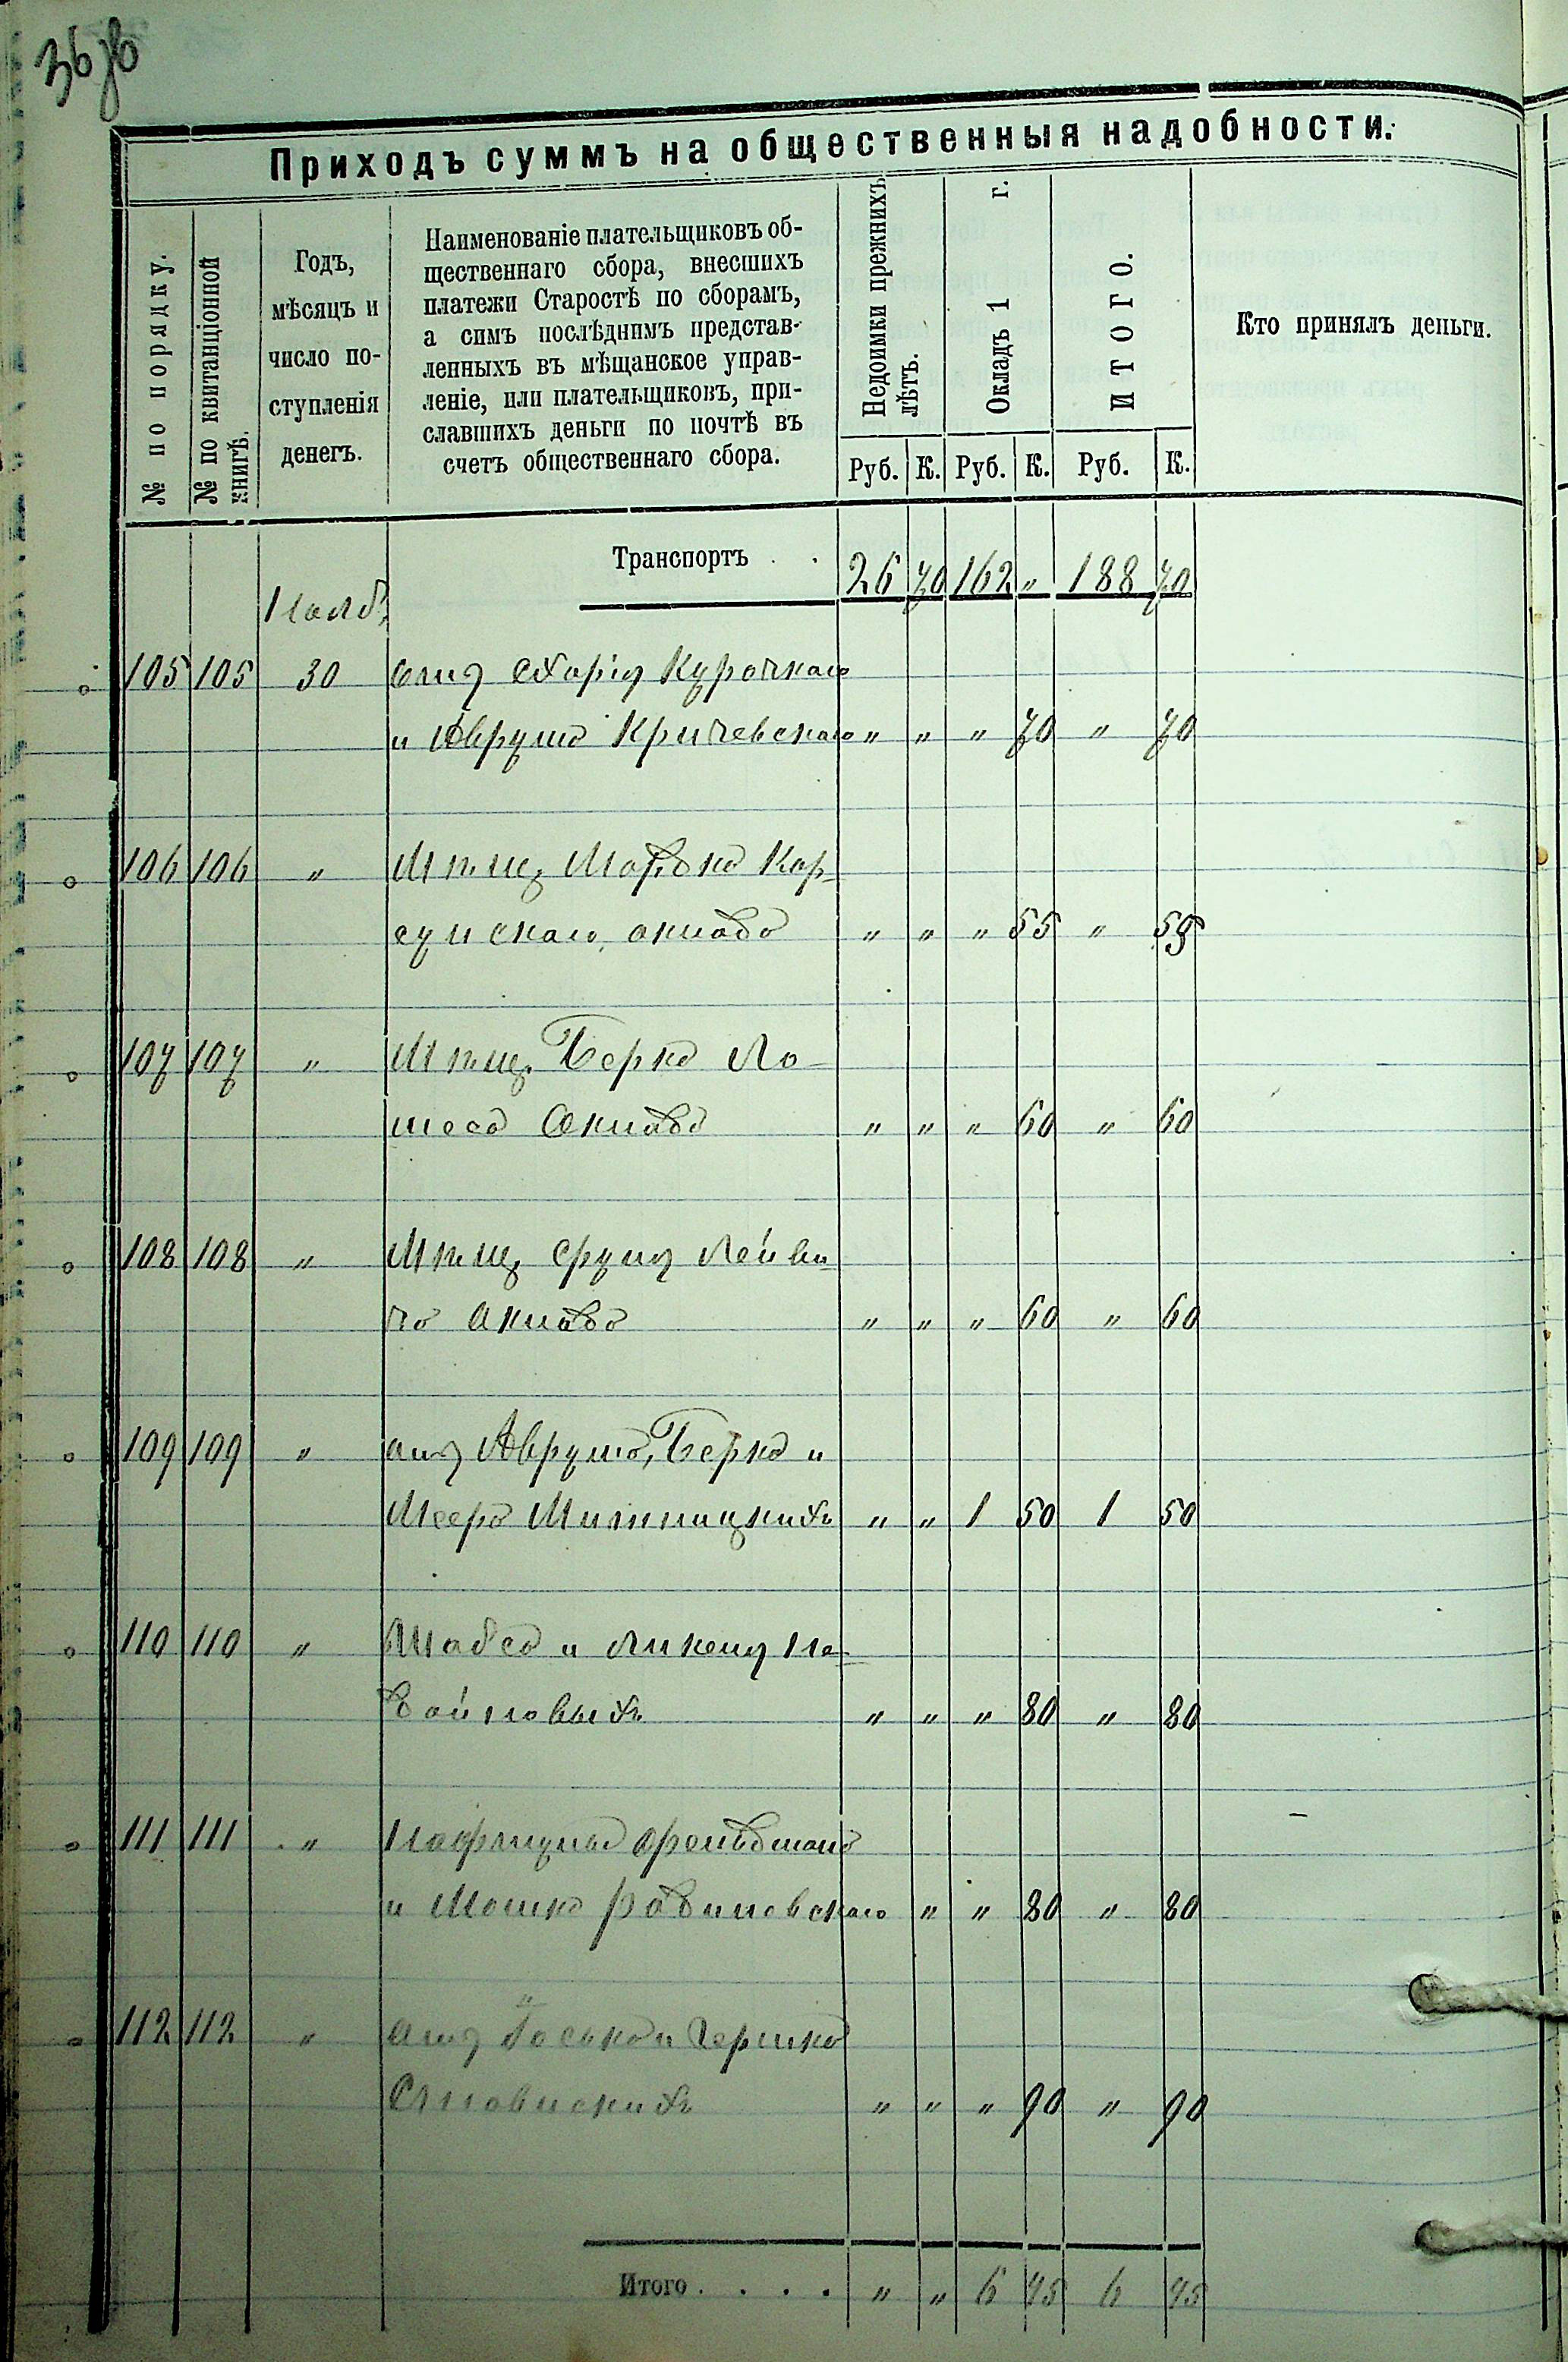 36 об
Приходъ суммъ на общественныя надобности.
№ по порядку.
№ по квитанціонной
книгѣ.
Годъ,
мѣсяцъ и
число по-
ступленія
денегъ.
Наименованіе плательщиковъ об-
щественнаго сбора, внесшихъ
платежи Старостѣ по сборамъ,
а симъ послѣднимъ представ-
ленныхъ въ мѣщанское управ-
леніе, или плательщиковъ, при-
славшихъ деньги по почтѣ въ
счетъ общественнаго сбора.
Недоимки прежнихъ
лѣтъ.
Окладъ 1 г.
ИТОГО.
Кто принялъ деньги.
Руб. К. Руб. К. Руб. К.
Транспортъ . . 26 70 162 " 188 70
Нояб.
105 105 30 Отъ Харія Курочкаго
и Аврума Кричевскаго " " " 70 " 70
106 106 " Мѣщ. Мордка Кор-
сунскаго оклада " " " 55 " 55
107 107 " Мѣщ. Берка Ло-
Оклада " " " 60 " 60
108 108 " Мѣщ. Сруля
Оклада " " " 60 " 60
109 109 " отъ Аврума, Берка и
Меера " " 1 50 1 50
110 110 " Шабса и
" " " 80 " 80
111 111 " Нафтула Фельдмана
и Мошка Рабиновскаго " " 80 " 80
112 112 " отъ Іоська и Гершка
" " " 90 " 90
Итого . . . . " " 6 45 6 45